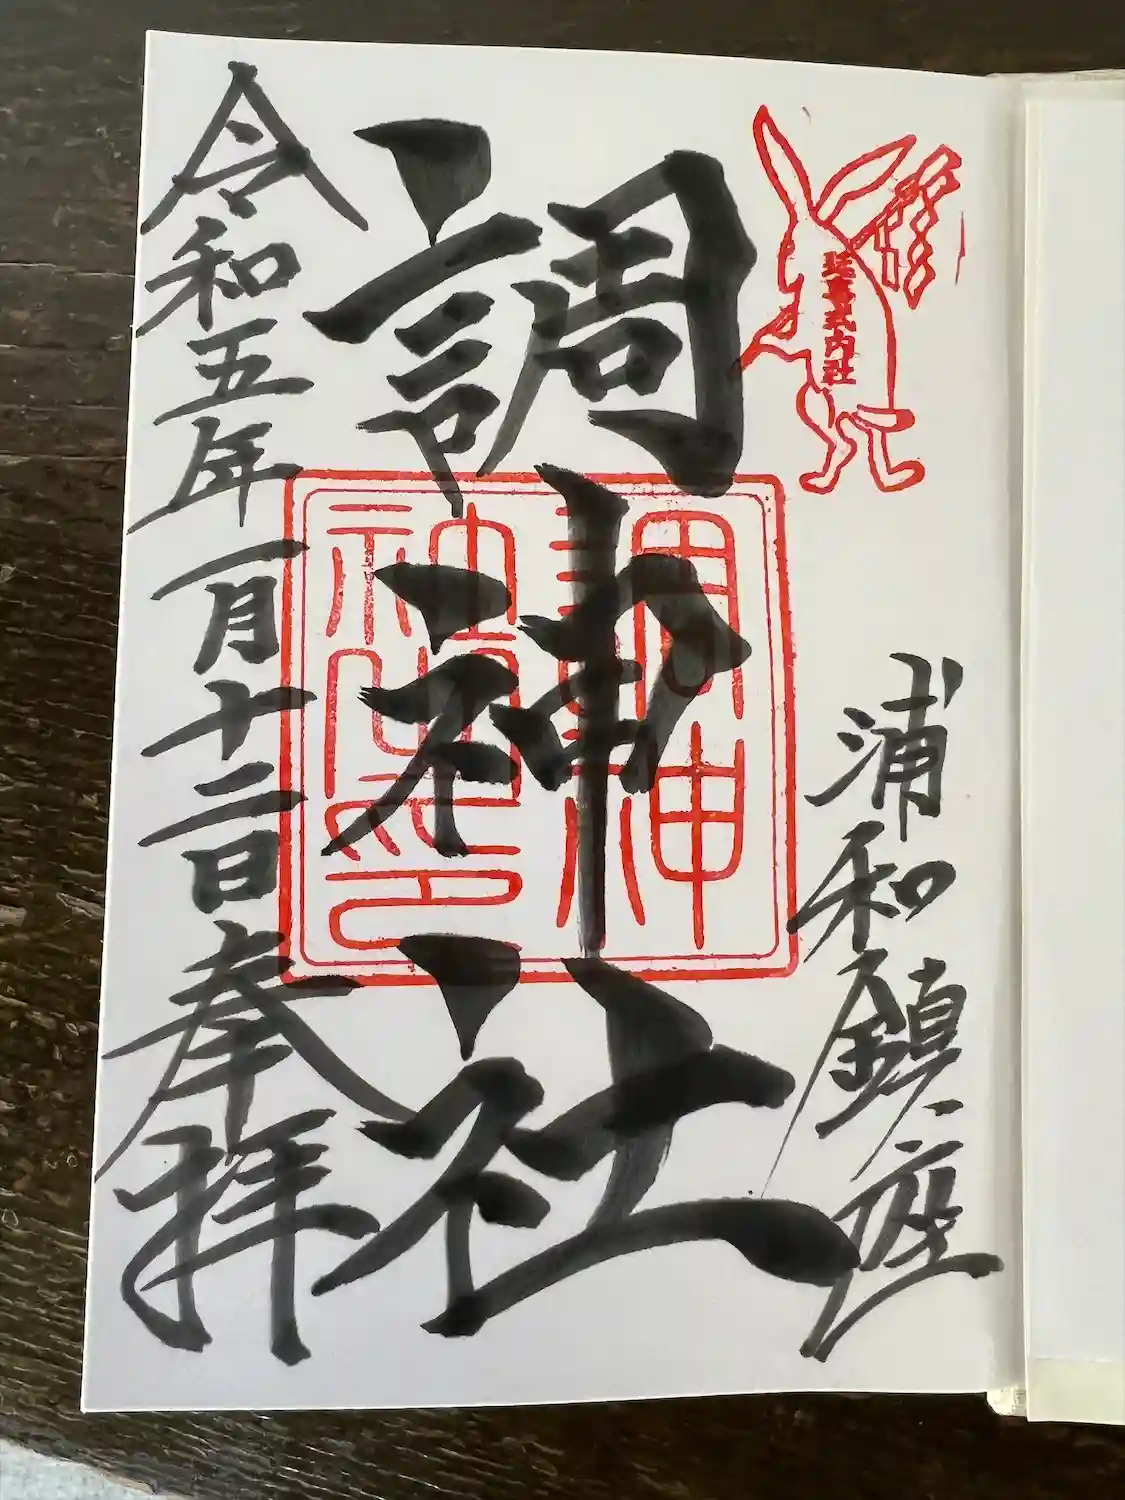 延喜式内社
浦和鎮座
調神社
調神
社之印
令和五年一月十二日奉拝